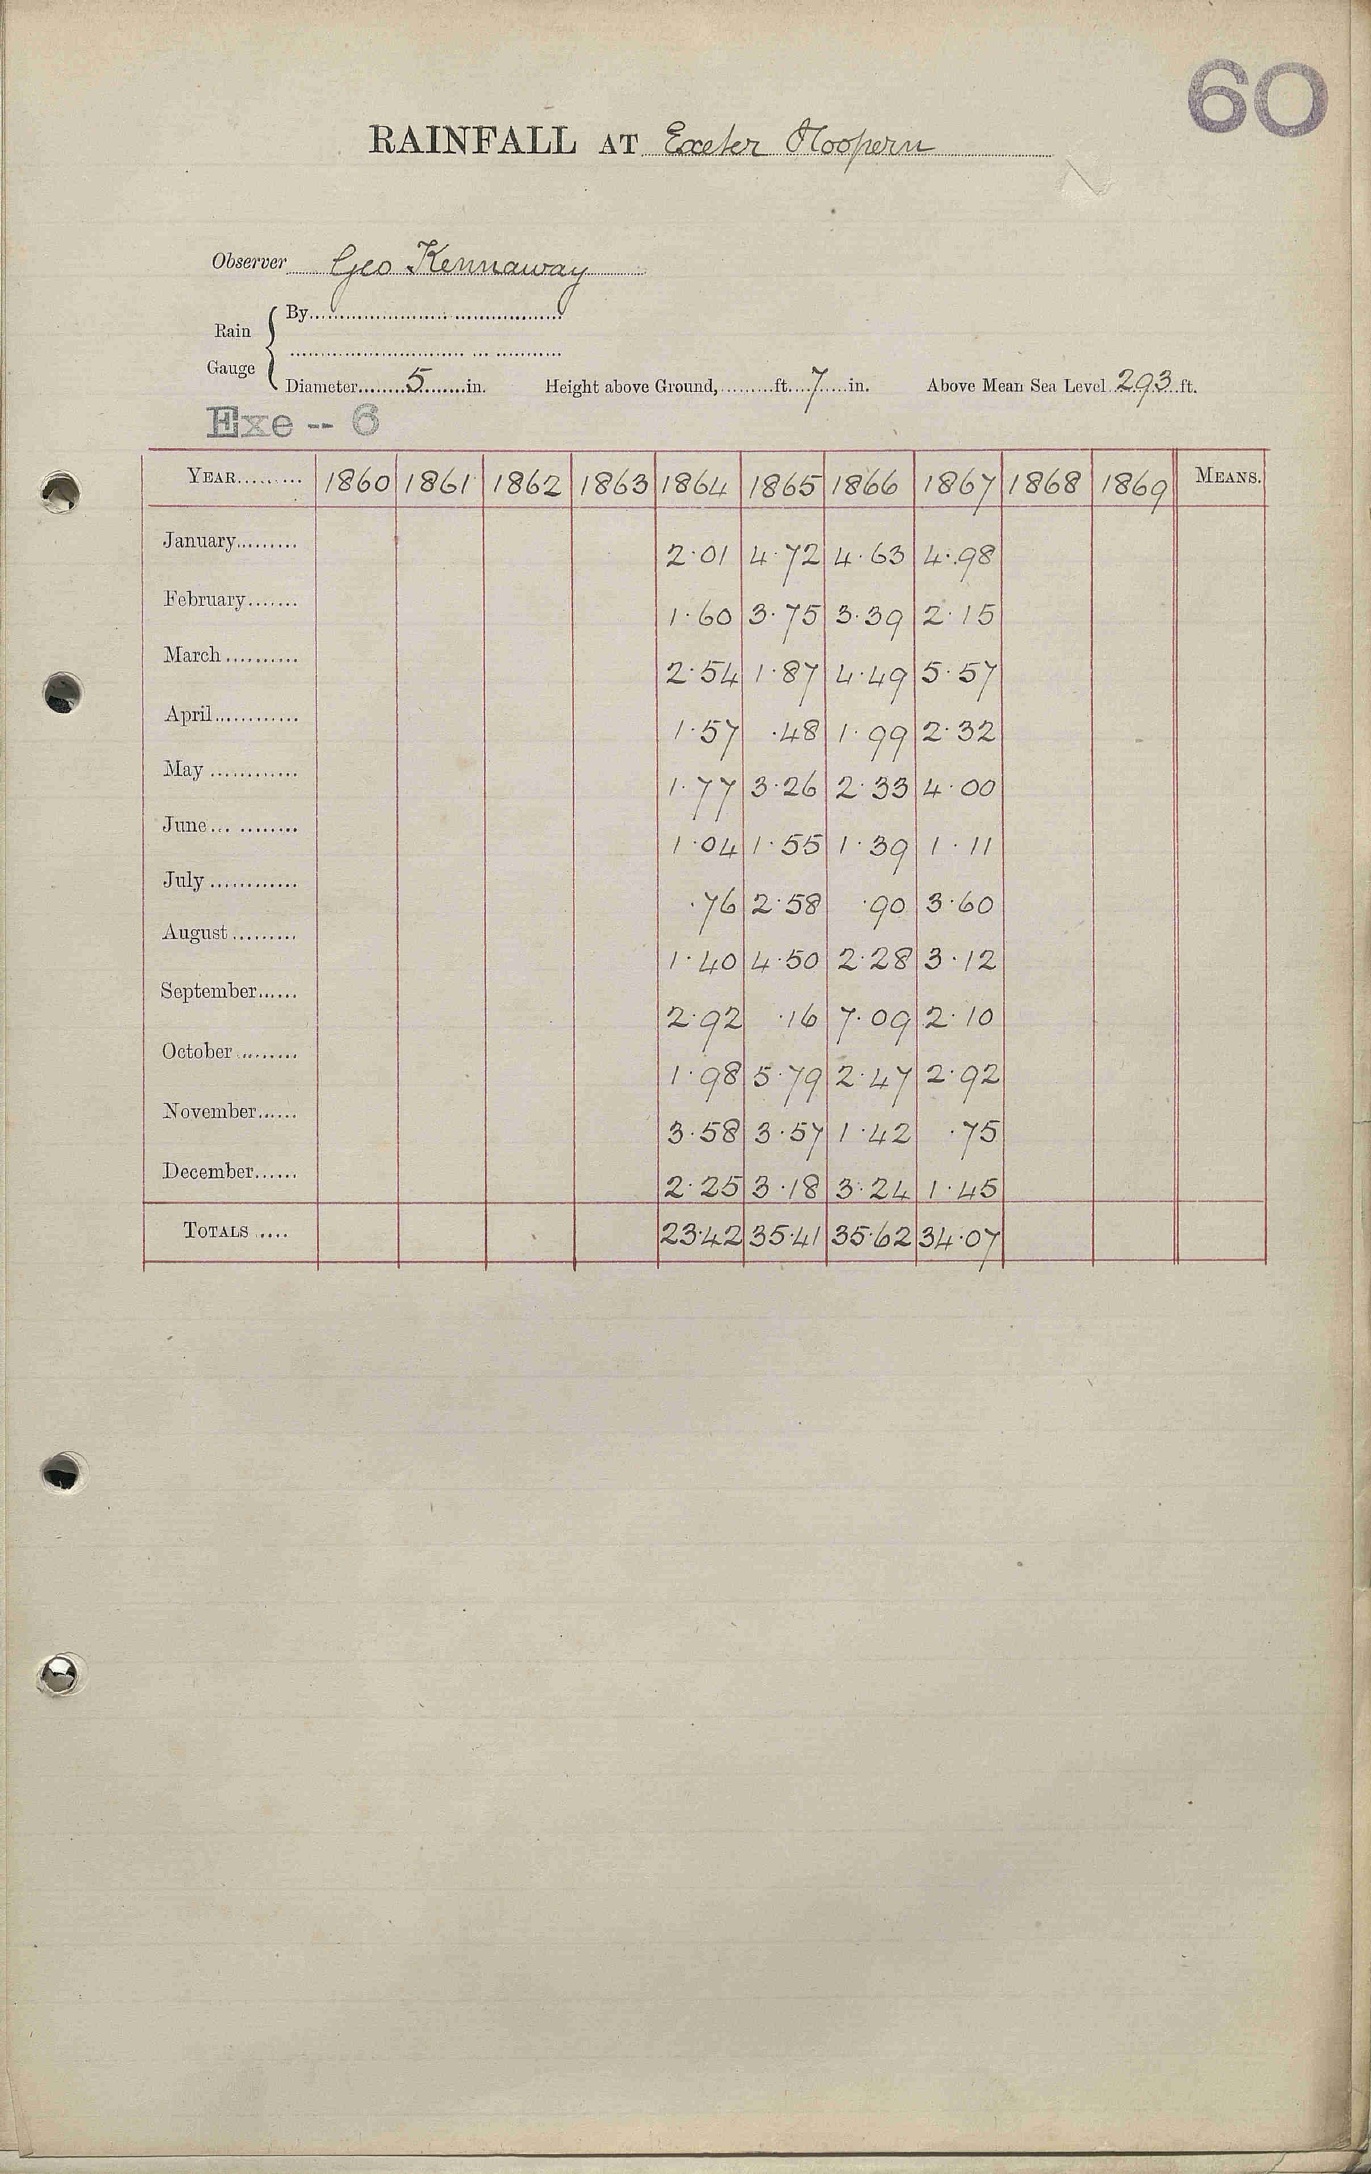 60
RAINFALL AT Exeter Hoopern
Observer Geo Kennaway
Rain Gauge { By
Diameter 5 in. Height above Ground, ft. 7 in. Above Mean Sea Level 293 ft.
Exe -- 6
YEAR 1860 1861 1862 1863 1864 1865 1866 1867 1868 1869 MEANS.
January 2.01 4.72 4.63 4.98
February 1.60 3.75 3.39 2.15
March 2.54 1.87 4.49 5.57
April 1.57 .48 1.99 2.32
May 1.77 3.26 2.33 4.00
June 1.04 1.55 1.39 1.11
July .76 2.58 .90 3.60
August 1.40 4.50 2.28 3.12
September 2.92 .16 7.09 2.10
October 1.98 5.79 2.47 2.92
November 3.58 3.57 1.42 .75
December 2.25 3.18 3.24 1.45
TOTALS 23.42 35.41 35.62 34.07